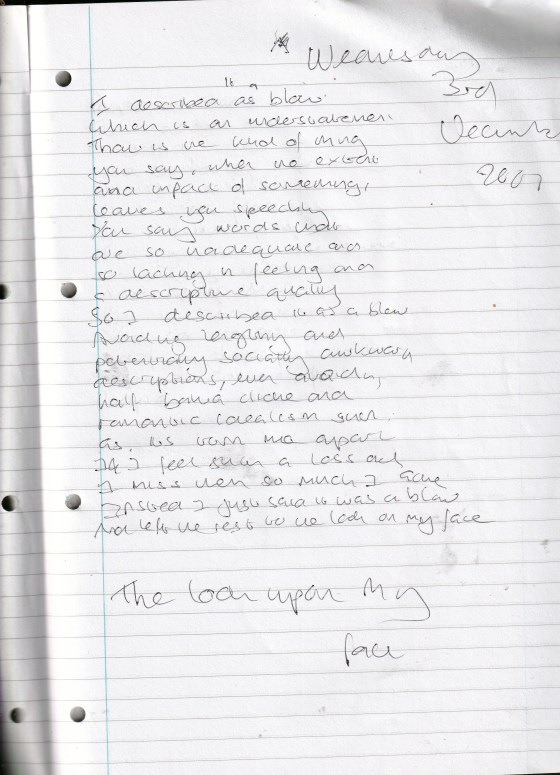 Wednesday
3rd
December
2007
I described it as a blow
Which is an understatement.
That is the kind of thing
you say, when the extent
and impact of something,
leaves you speechless
You say words which
are so inadequate and
so lacking in feeling and
descriptive quality
So I described it as a blow
Avoiding lengthy and
potentially socially awkward
descriptions, even avoiding
half baked cliche and
romantic idealism such
as, its torn me apart
I feel such a loss and
I miss them so much I ache
Instead I just said it was a blow
And left the rest to the look on my face
The look upon my
face